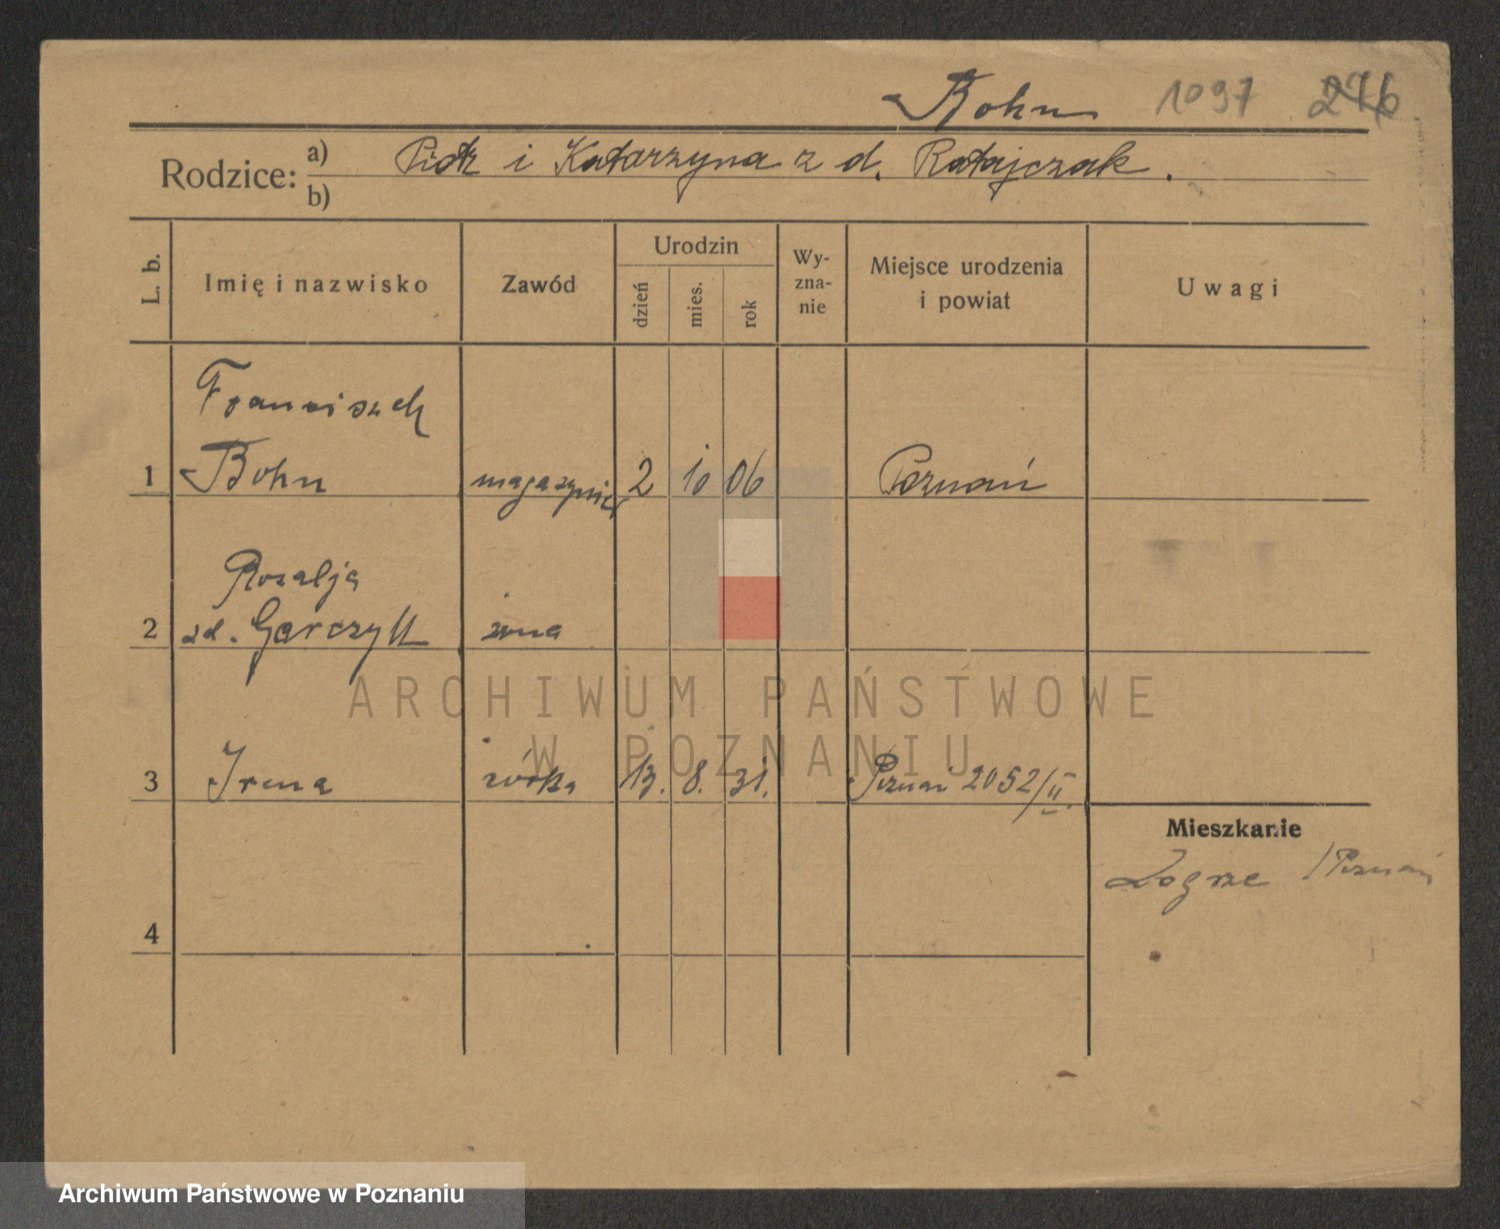 Bohn 1097 276
Rodzice: a) Piotr i Katarzyna z d. Ratajczak.
b)
L. b. Imię i nazwisko Zawód Urodzin dzień mies. rok Wy-zna-nie Miejsce urodzenia i powiat Uwagi
Franciszek
1 Bohn magazynier 2 10 06 Poznań
Rozalja
2 zd. Garczyk żona
3 Irena córka 13. 8. 31. Poznań 2052/II.
Mieszkanie
/Poznań
4
ARCHIWUM PAŃSTWOWE
W POZNANIU
Archiwum Państwowe w Poznaniu